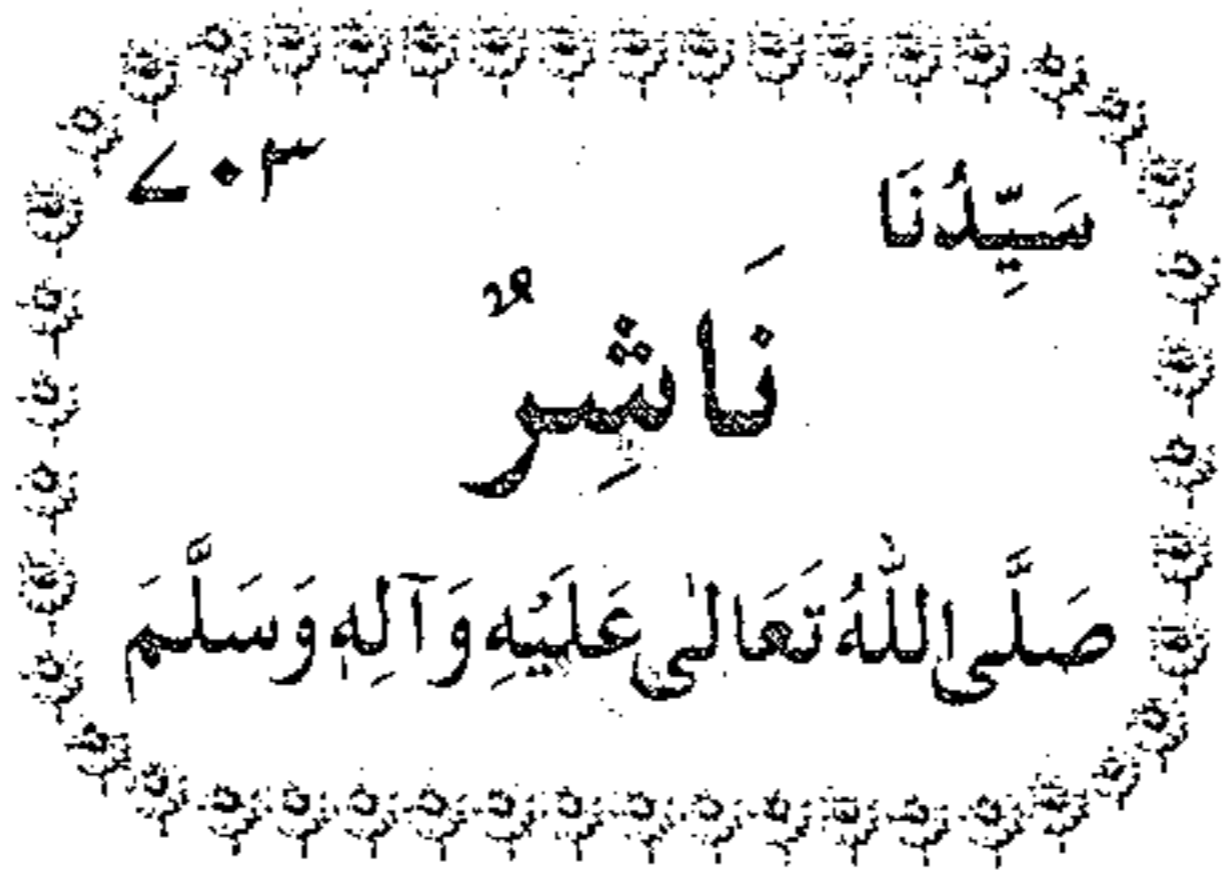 سَيِّدُنَا ۷۰۳
نَاشِرٌ
صَلَّى اللّٰهُ تَعَالٰى عَلَيْهِ وَآلِهٖ وَسَلَّمَ